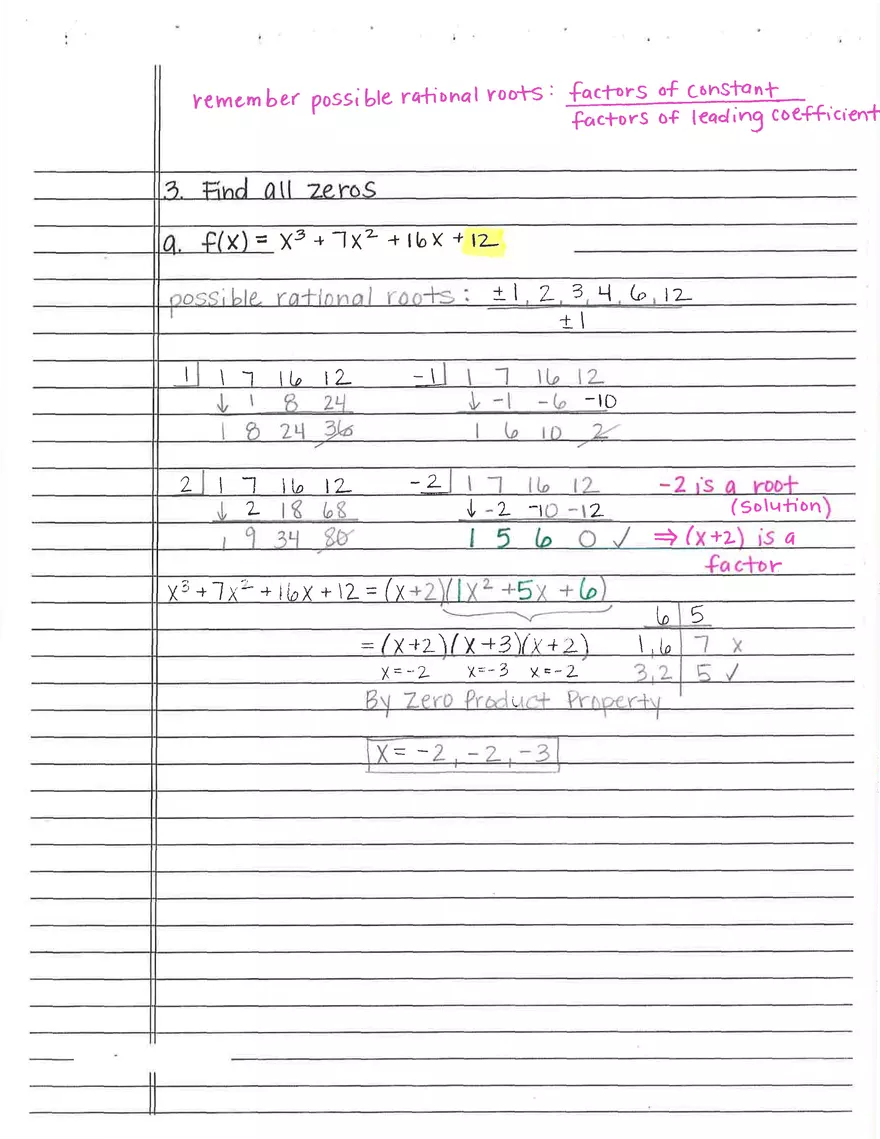 remember possible rational roots: factors of constant
factors of leading coefficient
3. Find all zeros
a. f(x) = x³ + 7x² + 16x + 12
possible rational roots: ±1, 2, 3, 4, 6, 12
±1
1 | 1 7 16 12
↓ 1 8 24
1 8 24 36
-1 | 1 7 16 12
↓ -1 -6 -10
1 6 10 2
2 | 1 7 16 12
↓ 2 18 68
1 9 34 80
-2 | 1 7 16 12
↓ -2 -10 -12
1 5 6 0 ✓
-2 is a root
(solution)
⇒ (x+2) is a
factor
x³ + 7x² + 16x + 12 = (x+2)(1x² + 5x + 6)
= (x+2)(x+3)(x+2)
x=-2 x=-3 x=-2
6 | 5
1,6 | 7 x
3,2 | 5 ✓
By Zero Product Property
x = -2, -2, -3